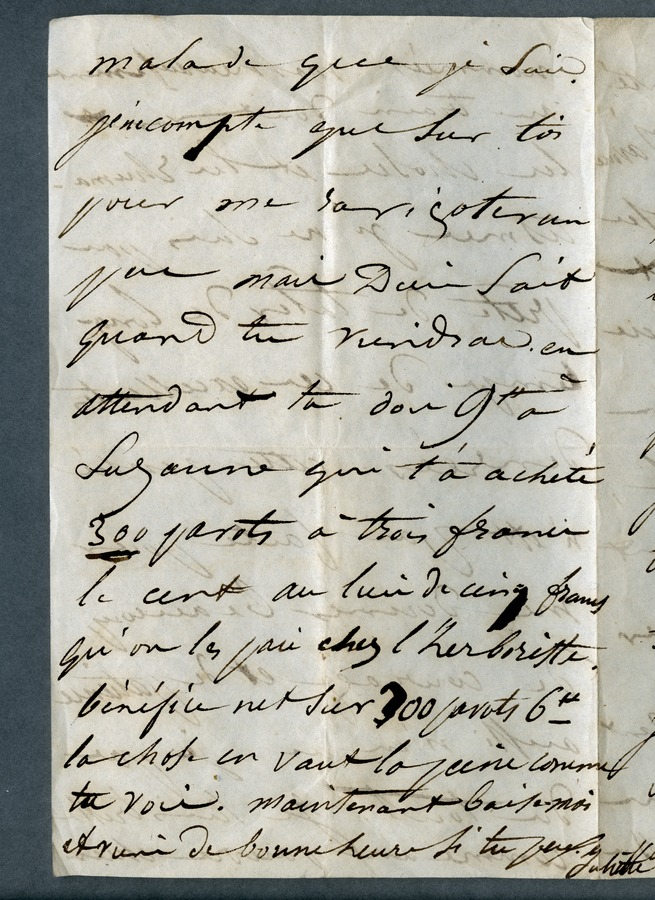 malade que je suis.
je ne compte que sur toi
pour me ravigoter un
peu mais Dieu sait
quand tu viendras. en
attendant tu dois 9ᵗᵗ à
Suzanne qui t'a acheté
300 pavots à trois francs
le cent au lieu de cinq francs
qu'on les paie chez l'herboriste.
bénéfice net sur 300 pavots 6ᵗᵗ
la chose en vaut la peine comme
tu vois. maintenant baise-moi
et viens de bonne heure si tu peux.
Juliette